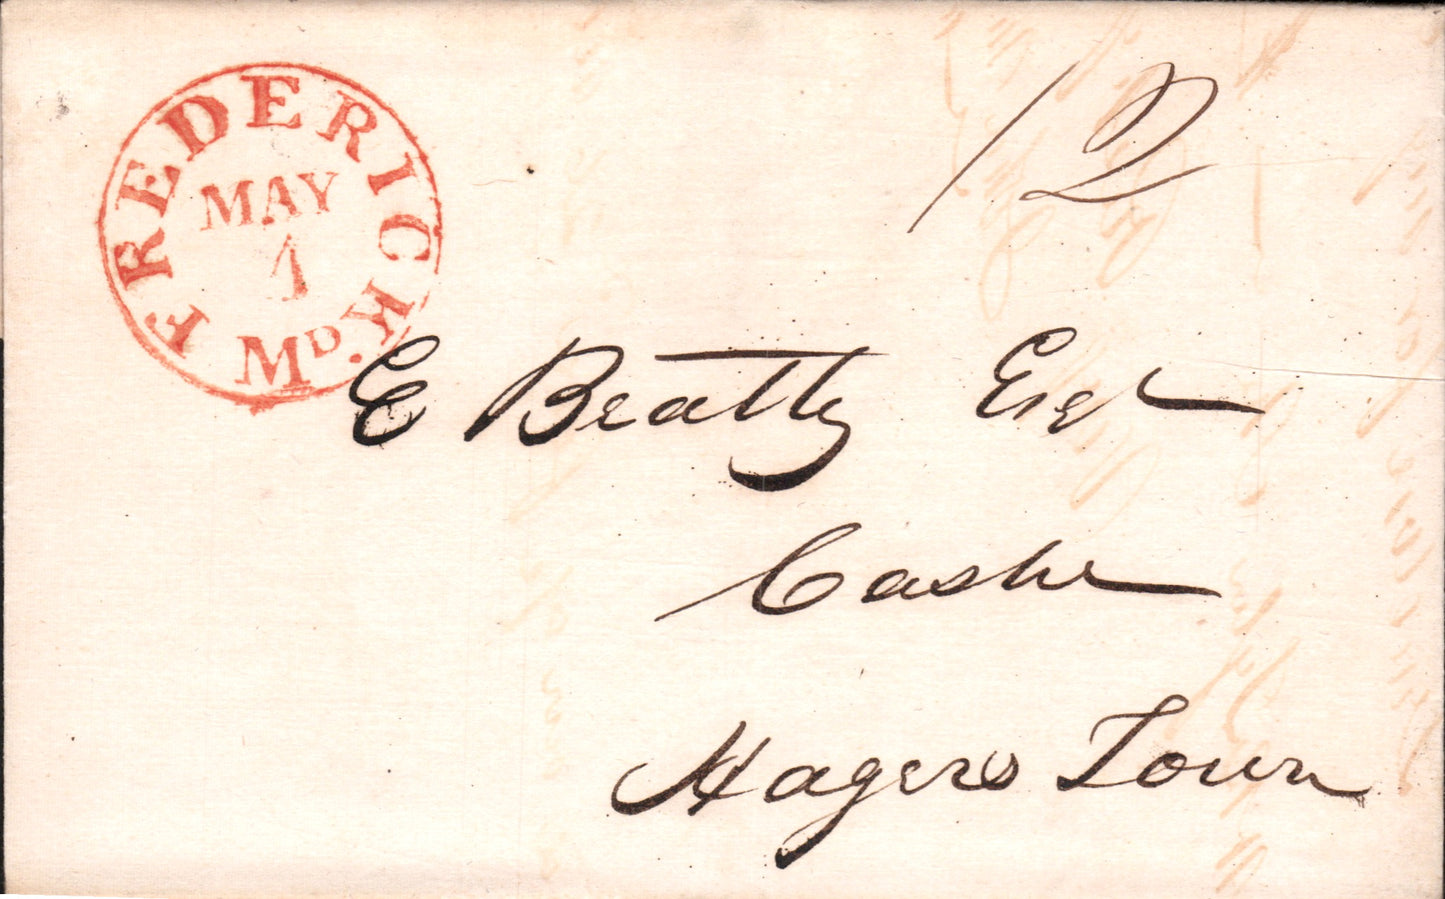 FREDERICK Md.
MAY
1
12
E Beatty Esqr
Cashr
Hagers Town